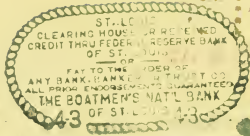 ST. LOUIS
CLEARING HOUSE OR RECEIVED
CREDIT THRU FEDERAL RESERVE BANK
OF ST. LOUIS
OR
PAY TO THE ORDER OF
ANY BANK, BANKER OR TRUST CO.
ALL PRIOR ENDORSEMENTS GUARANTEED
THE BOATMEN'S NAT'L BANK
4-3 OF ST. LOUIS 4-3